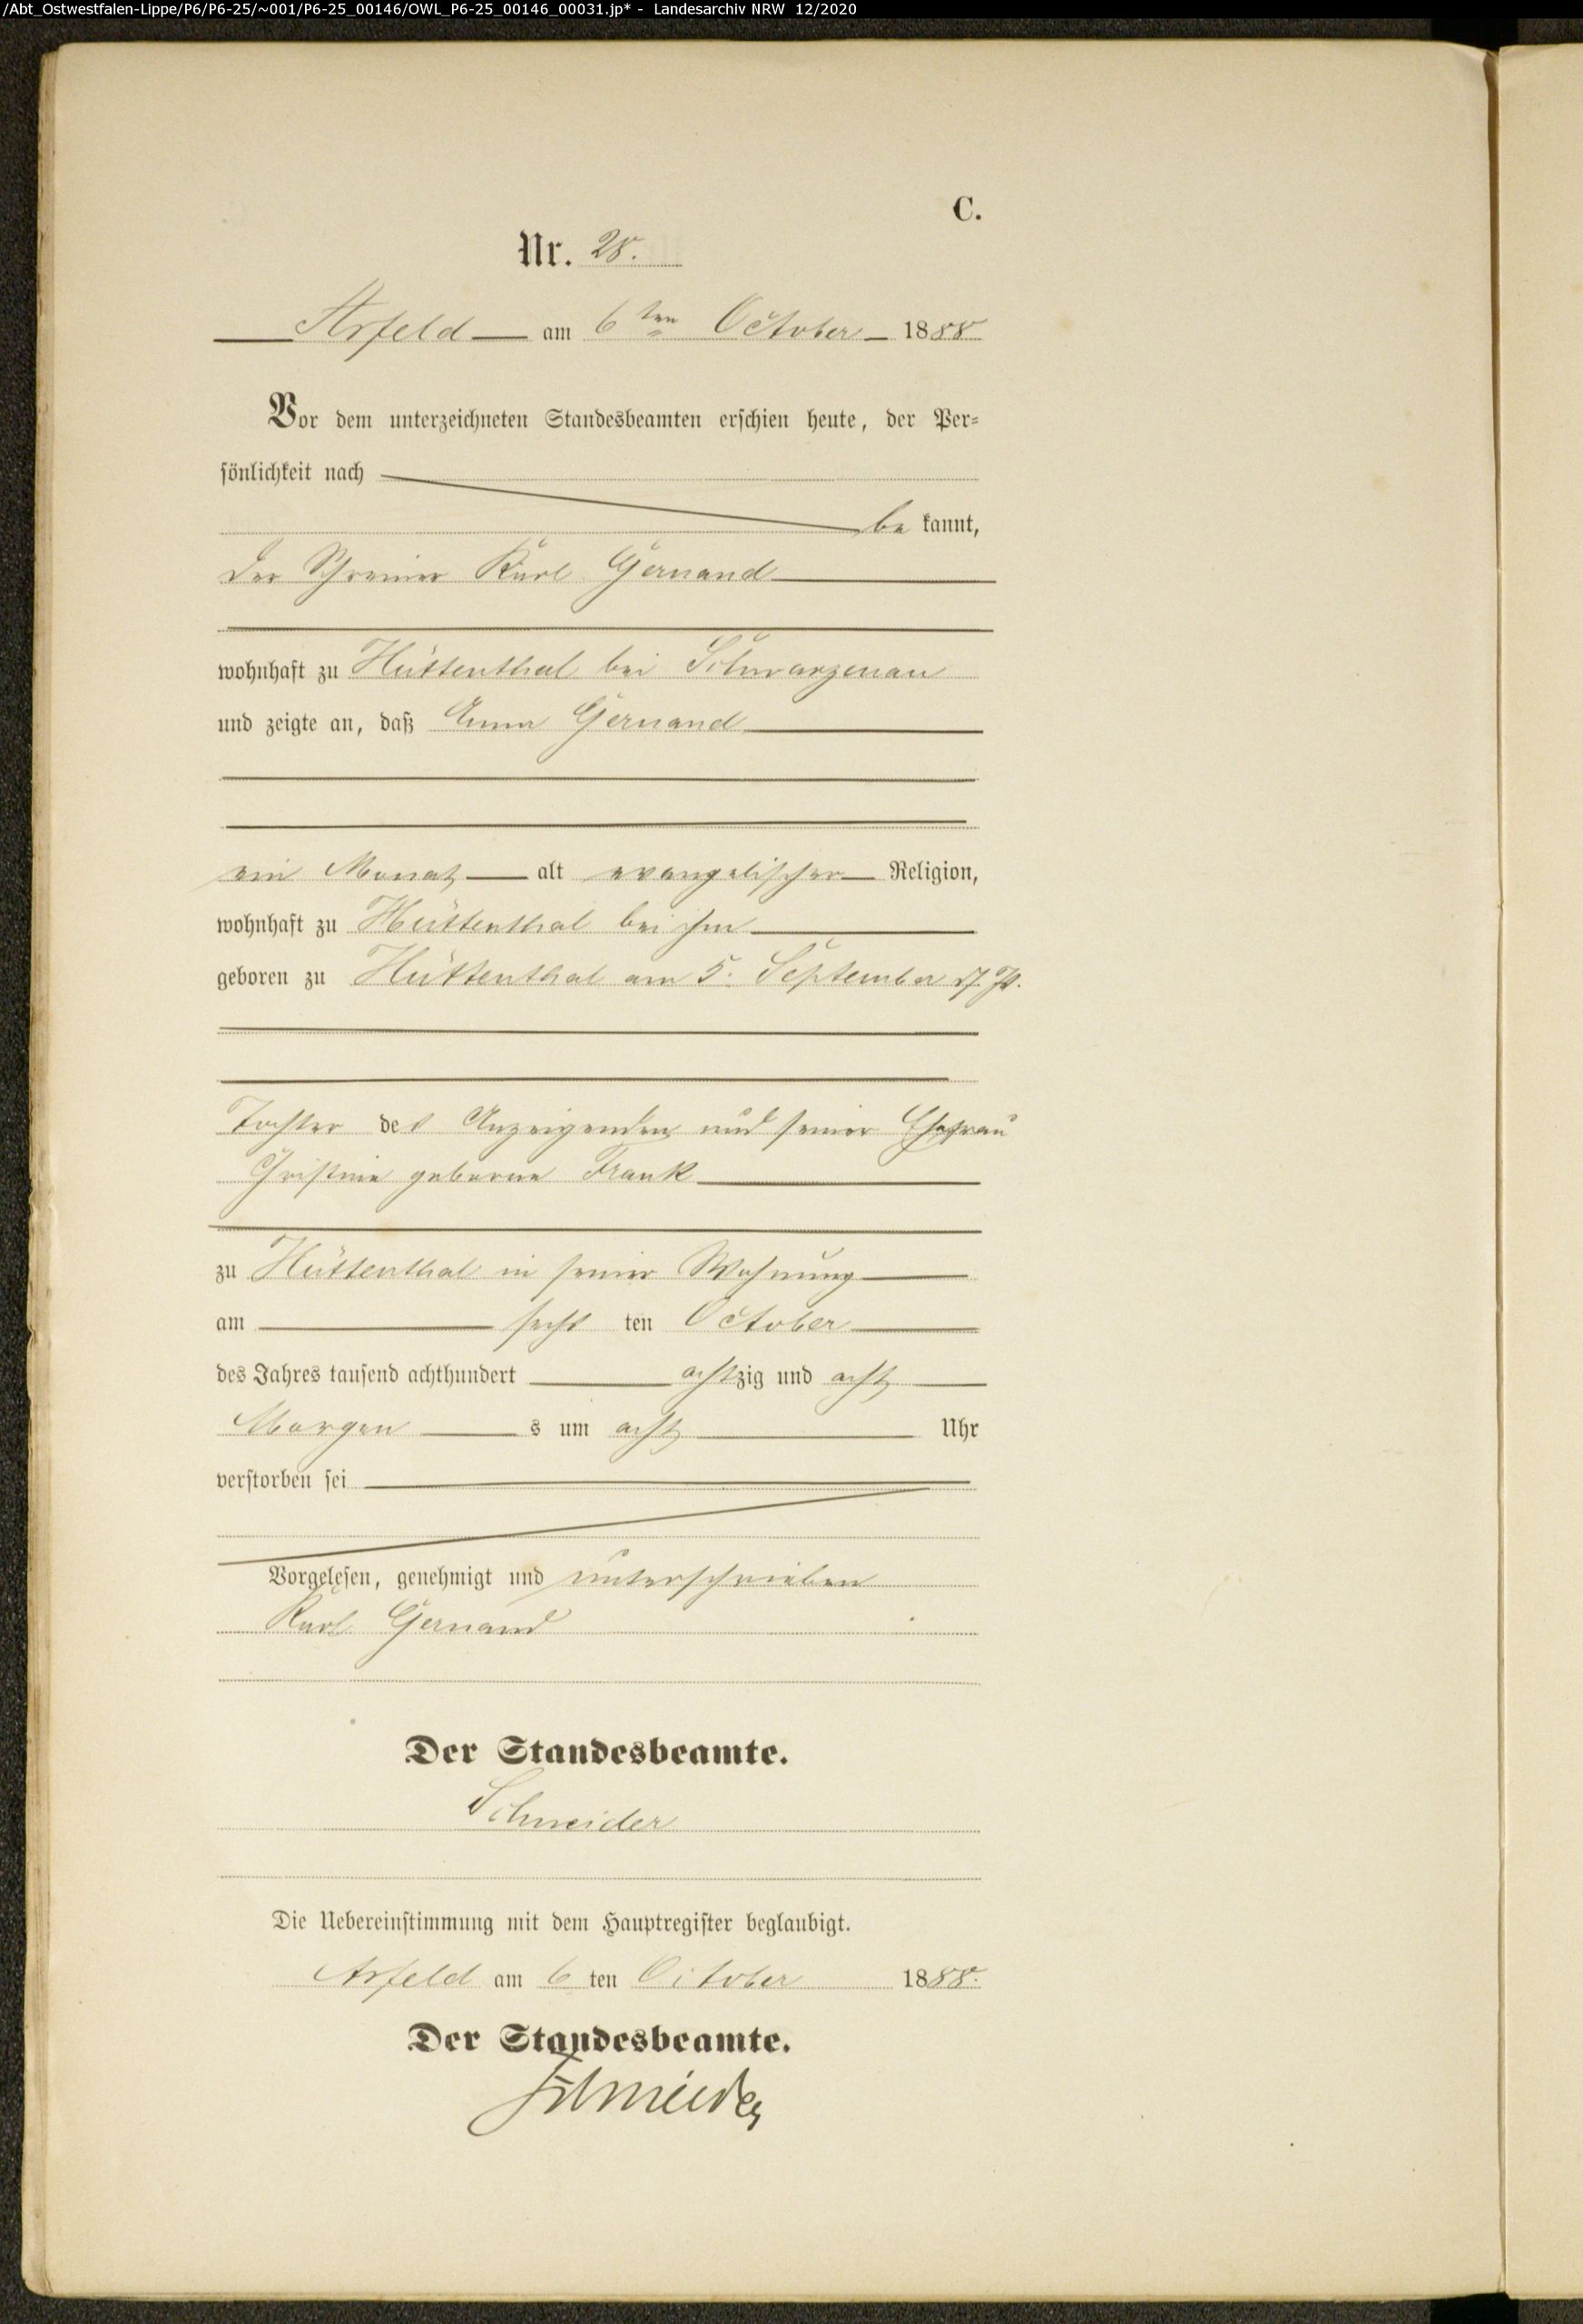 /Abt_Ostwestfalen-Lippe/P6/P6-25/~001/P6-25_00146/OWL_P6-25_00146_00031.jp* - Landesarchiv NRW 12/2020
C.
Nr. 28.
Arfeld am 6ten October 1888
Vor dem unterzeichneten Standesbeamten erschien heute, der Per-
sönlichkeit nach
be kannt,
der Schreiner Karl Gernand
wohnhaft zu Hüttenthal bei Schwarzenau
und zeigte an, daß Anna Gernand
ein Monat alt evangelischer Religion,
wohnhaft zu Hüttenthal bei ihm
geboren zu Hüttenthal am 5. September d. Js.
Tochter des Anzeigenden und seiner Ehefrau
Christine geborne Frank
zu Hüttenthal in seiner Wohnung
am sechs ten October
des Jahres tausend achthundert achtzig und acht
Morgen s um acht Uhr
verstorben sei
Vorgelesen, genehmigt und unterschrieben
Karl Gernand
Der Standesbeamte.
Schneider
Die Uebereinstimmung mit dem Hauptregister beglaubigt.
Arfeld am 6 ten October 1888.
Der Standesbeamte.
Schneider